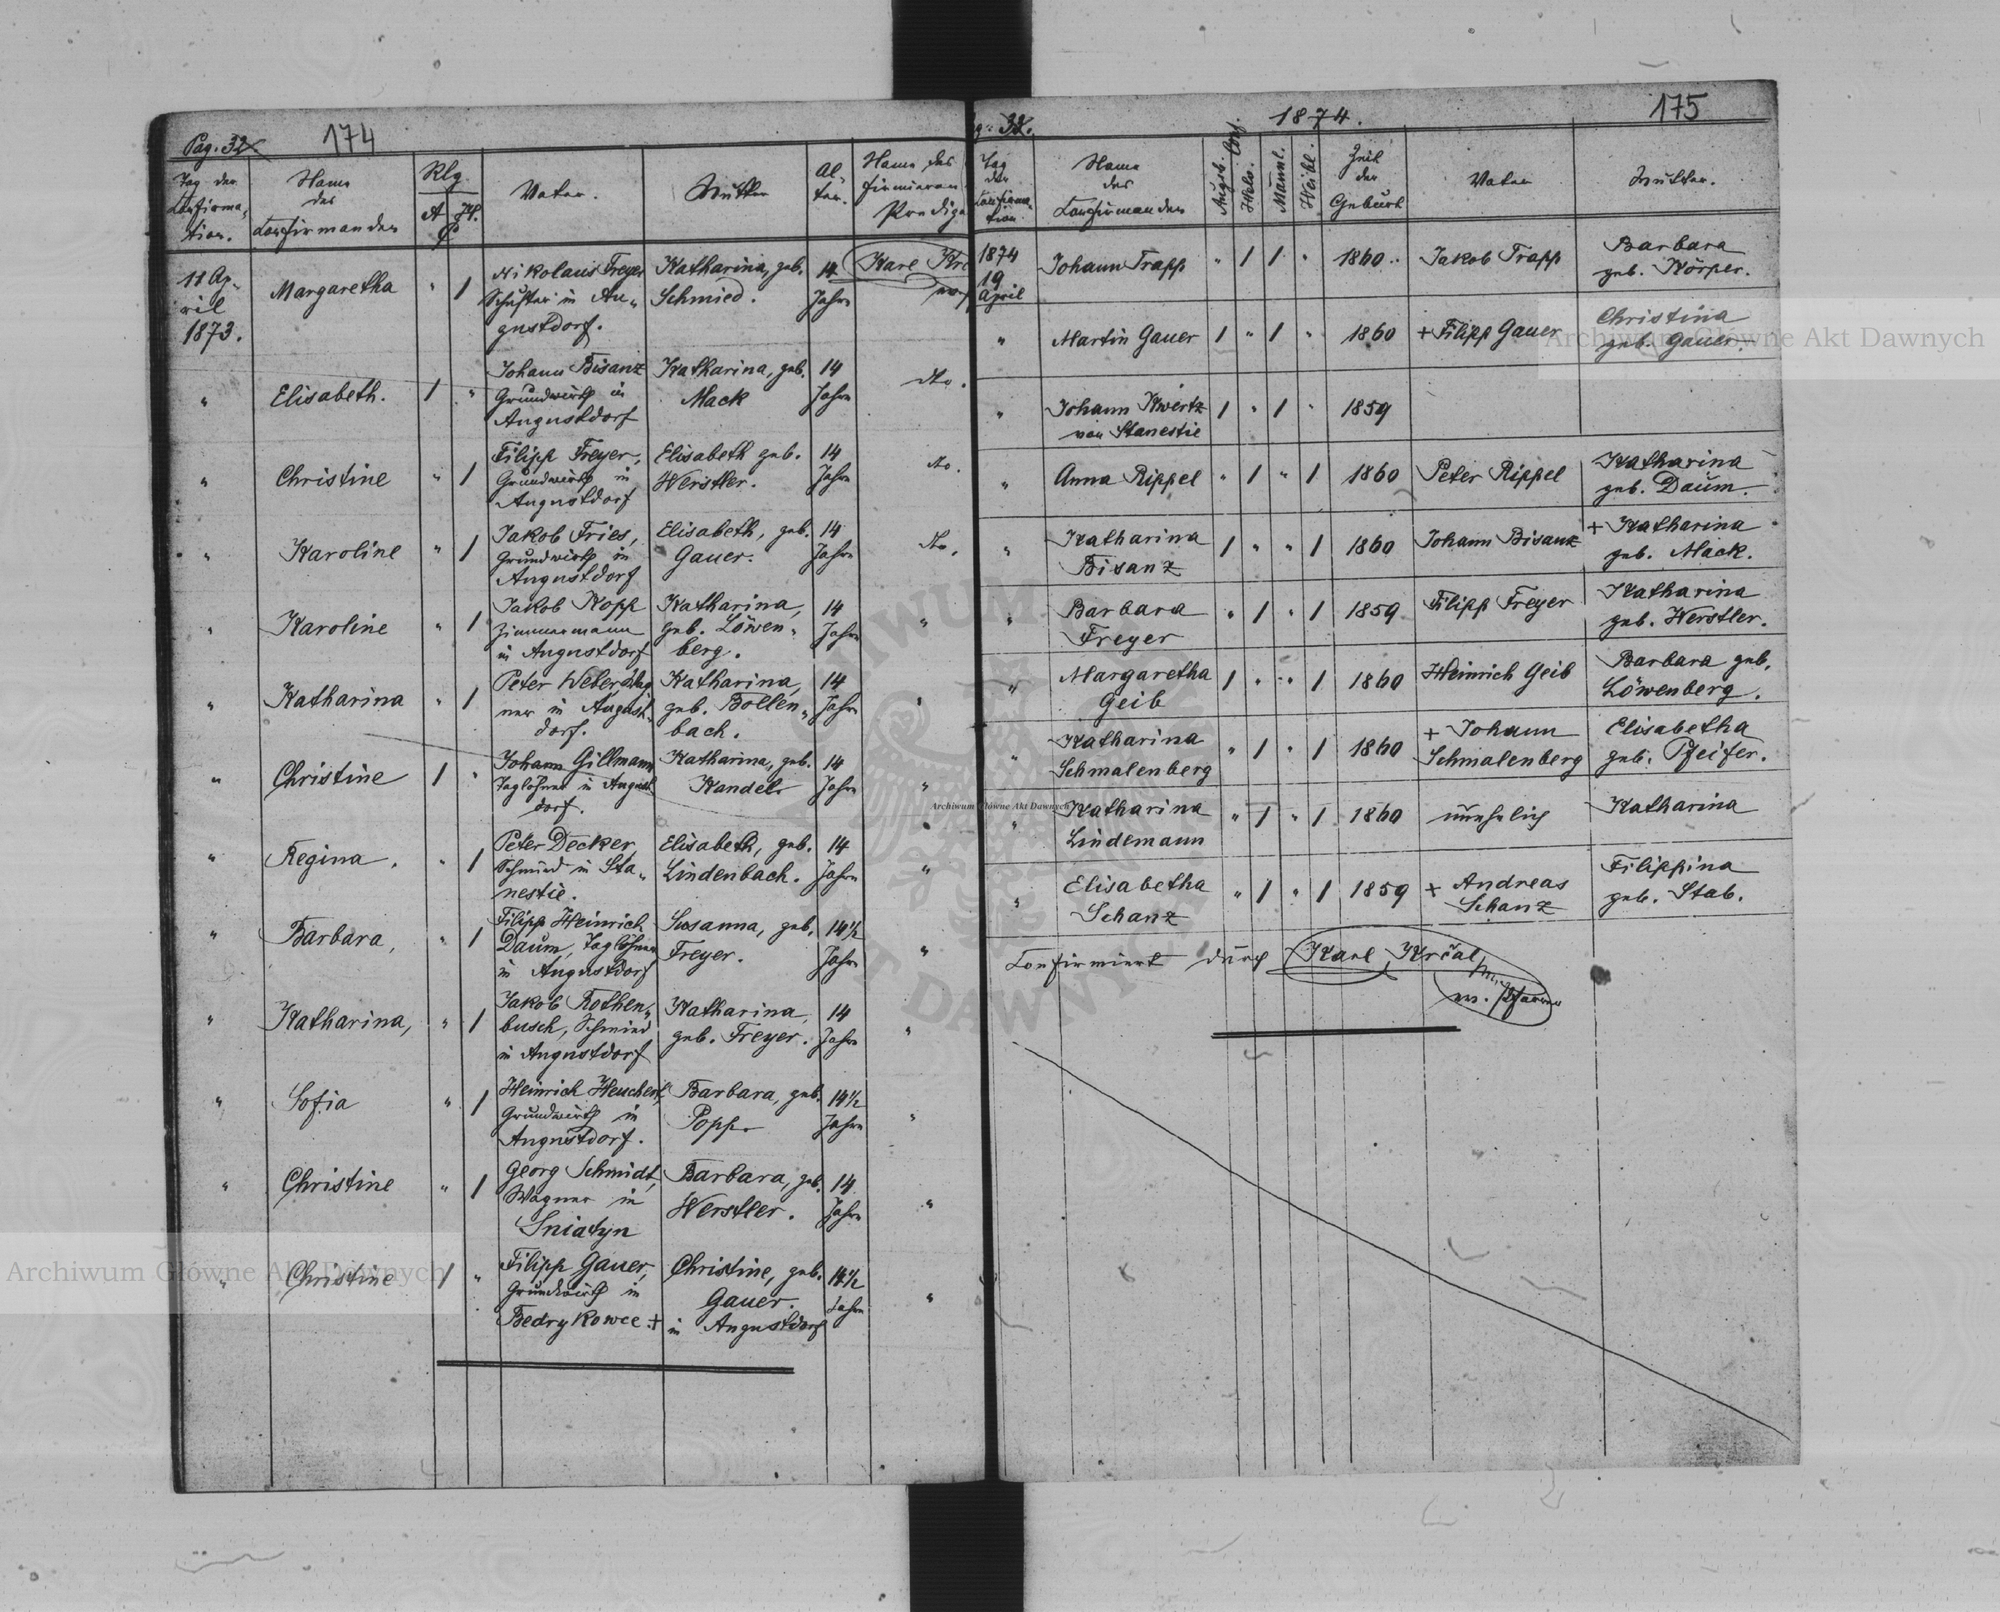 Pag. 32.
174
Tag der
Confirma-
tion.
Name
des
Confirmanden
Rlg
A H.
C
Vater.
Mutter
Al-
ter.
Name des
firmieren
Predige
11 Ap-
ril
1873.
Margaretha
" 1
Nikolaus Freyer
Schuster in Au-
gustdorf.
Katharina, geb.
Schmied.
14
Jahre
Karl Kre
"
Elisabeth.
1 "
Johann Bisanz
Grundwirth in
Augustdorf
Katharina, geb.
Mack
14
Jahre
dto.
"
Christine
" 1
Filipp Freyer,
Grundwirth in
Augustdorf
Elisabeth geb.
Werstler.
14
Jahre
dto.
"
Karoline
" 1
Jakob Fries,
Grundwirth in
Augustdorf
Elisabeth, geb.
Gauer.
14
Jahre
dto.
"
Karoline
" 1
Jakob Kopp
Zimmermann
in Augustdorf
Katharina,
geb. Löwen-
berg.
14
Jahre
"
"
Katharina
" 1
Peter Weber Wag
ner in August-
dorf.
Katharina,
geb. Bollen-
bach.
14
Jahre
"
"
Christine
1 "
Johann Gillmann
Taglöhner in August
dorf.
Katharina, geb.
Kandel
14
Jahre
"
"
Regina.
" 1
Peter Decker,
Schmied in Sta-
nestie.
Elisabeth, geb.
Lindenbach.
14
Jahre
"
"
Barbara,
" 1
Filipp Heinrich
Daum, Taglöhner
in Augustdorf
Susanna, geb.
Freyer.
14½
Jahre
"
"
Katharina,
" 1
Jakob Rothen-
busch, Schmied
in Augustdorf
Katharina,
geb. Freyer.
14
Jahre
"
"
Sofia
" 1
Heinrich Heuchert,
Grundwirth in
Augustdorf.
Barbara, geb.
Popp.
14½
Jahre
"
"
Christine
" 1
Georg Schmidt,
Wagner in
Sniatyn
Barbara, geb.
Werstler.
14
Jahre
"
"
Christine
1 "
Filipp Gauer,
Grundwirth in
Bedrykowce. +
Christine, geb.
Gauer.
in Augustdorf
14½
Jahre
"
g. 32.
1874.
175
Tag
der
Confirma
tion
Name
des
Confirmanden
Augsb. Conf.
Helv.
Männl.
Weibl.
Zeit
der
Geburt
Vater
Mutter.
1874
19
April
Johann Trapp
" 1 1 "
1860.
Jakob Trapp
Barbara
geb. Körper.
"
Martin Gauer
1 " 1 "
1860
+ Filipp Gauer
Christina
geb. Gauer.
"
Johann Kwertz
von Stanestie
1 " 1 "
1859
"
Anna Rippel
" 1 " 1
1860
Peter Rippel
Katharina
geb. Daum.
"
Katharina
Bisanz
1 " " 1
1860
Johann Bisanz
+ Katharina
geb. Mack.
"
Barbara
Freyer
" 1 " 1
1859
Filipp Freyer
Katharina
geb. Werstler.
"
Margaretha
Geib
1 " " 1
1860
Heinrich Geib
Barbara geb.
Löwenberg.
"
Katharina
Schmalenberg
" 1 " 1
1860
+ Johann
Schmalenberg
Elisabetha
geb. Pfeifer.
"
Katharina
Lindemann
" 1 " 1
1860
unehelich
Katharina
"
Elisabetha
Schanz
" 1 " 1
1859
+ Andreas
Schanz
Filippina
geb. Stab.
Confirmiert durch Karl Krčal,
Archiwum Główne Akt Dawnych
Archiwum Główne Akt Dawnych
Archiwum Główne Akt Dawnych